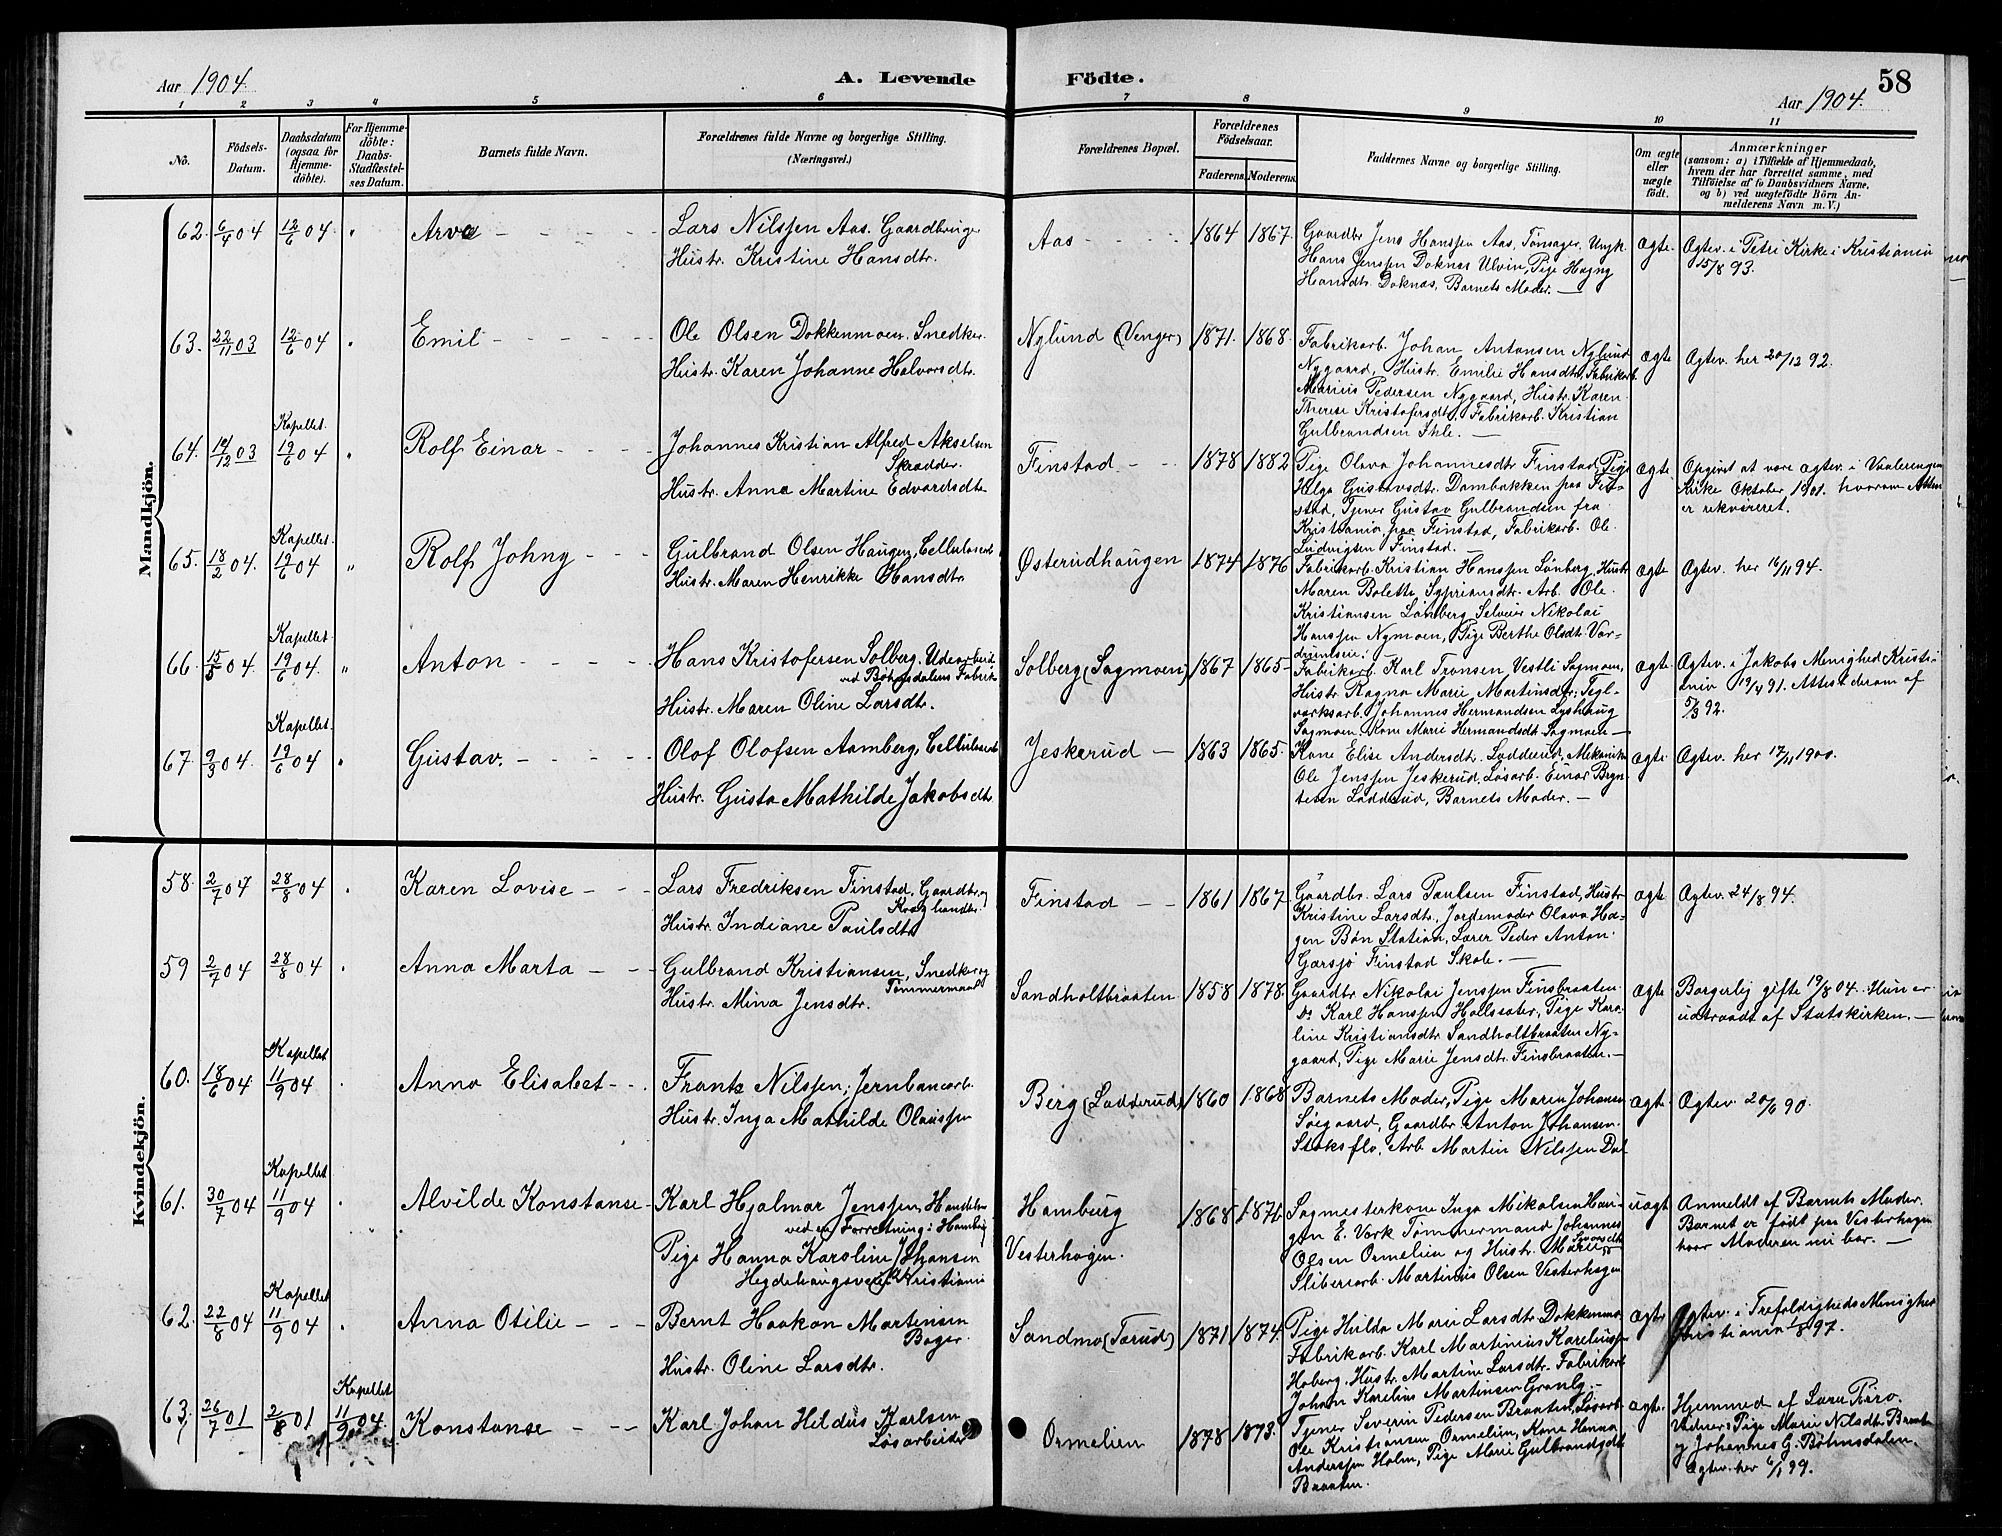 Aar 1904.
A. Levende Födte.
58
Aar 1904.
1 2 3 4 5 6 7 8 9 10 11
No.
Födsels-Datum.
Daabsdatum (ogsaa for Hjemme-döbte).
For Hjemme-döbte: Daabs-Stadfæstel-ses Datum.
Barnets fulde Navn.
Forældrenes fulde Navne og borgerlige Stilling. (Næringsvei.)
Forældrenes Bopæl.
Forældrenes Födselsaar.
Faderens. Moderens.
Faddernes Navne og borgerlige Stilling.
Om ægte eller uægte født.
Anmærkninger
(saasom: a) i Tilfælde af Hjemmedaab,
hvem der har forrettet samme, med
Tilföielse af to Daabsvidners Navne,
og b) ved uægtefödte Börn An-
melderens Navn m. V.)
Mandkjön.
62. 6/4 04 12/6 04. Arve
Lars Nilssen Aas. Gaardbruger
Hustr. Kristine Hansdtr.
Aas 1864 1867.
Gaardbr Jens Hanssen Aas, Tønsager, Ungk.
Hans Jenssen Doknæs Ulvin, Pige Hagny
Hansdtr. Doknæs, Barnets Moder. —
ægte.
Ægtev. i Petri Kirke i Kristiania
15/8 93.
63. 22/11 03 12/6 04 Emil
Ole Olsen Dokkenmoen. Snedker
Hustr. Karen Johanne Halvorsdtr.
Nylund (Venger) 1871. 1868.
Fabrikarb. Johan Antonsen Nylund
Nygaard, Hustr. Emilie Hansdtr, Fabrikarb.
Marius Pedersen Nygaard, Hustr. Karen
Therese Kristofersdtr, Fabrikarb. Kristian
Gulbrandsen Ihle. —
ægte
Ægtev. her 20/12 92.
64. 14/12 03 Kapellet 19/6 04 Rolf Einar
Johannes Kristian Alfred Akselsen
Skrædder.
Hustr. Anna Martine Edvardsdtr
Finstad 1878 1882
Pige Olava Johannesdtr Finstad, Pige
Helga Gustavsdtr. Dambakken paa Fin-
stad, Tjener Gustav Gulbrandsen fra
Kristiania, paa Finstad, Fabrikarb. Ole
Ludvigsen Finstad. —
ægte
Opgivet at være ægtev. i Vaalerengen
Kirke Oktober 1901. hvorom Attest
er rekvireret.
65. 18/2 04. Kapellet 19/6 04 Rolf Johny
Gulbrand Olsen Haugen, Cellulosearb
Hustr. Maren Henrikke Hansdtr.
Østerudhaugen 1874 1876
Fabrikarb. Kristian Hanssen Lönberg, Hustr
Maren Bolette Syprionsdtr. Arb. Ole
Kristiansen Lönberg, Selveier Nikolai
Hanssen Nymoen, Pige Berthe Olsdtr. Vor-
ægte
Ægtev. her 16/11 94.
66. 15/5 04. Kapellet 19/6 04. Anton
Hans Kristofersen Solberg. Udearbeid.
ved Böhnsdalens Fabrik
Hustr. Maren Oline Larsdtr.
Solberg (Sagmoen) 1867 1865
Fabrikarb. Karl Tronsen Vestli Sagmoen,
Hustr Ragna Marie, Martinsdtr; Tegl-
værksarb. Johannes Hermandsen Lyshaug
Sagmoen, Kone Marie Hermandsdt. Sagmoen —
ægte.
Ægtev. i Jakobs Menighed Kristi-
ania 19/4 91. Attest derom af
5/3 92.
67. 9/3 04. Kapellet. 19/6 04 Gustav.
Olof Olofsen Aamberg, Cellulosearb
Hustr. Gusta Mathilde Jakobsdtr
Jeskerud 1863 1865.
Kone Elise Andersdtr. Ladderud, Mekaniker
Ole Jenssen Jeskerud, Løsarb. Einar Bryn-
tesen Ladderud, Barnets Moder. —
ægte
Ægtev. her 17/11 1900.
Kvindekjön.
58. 2/7 04 28/8 04 Karen Lovise
Lars Fredriksen Finstad, Gaardbr og
Kreaturhandler
Hustr. Indiane Paulsdtr
Finstad 1861 1867
Gaardbr. Lars Paulsen Finstad, Hustr
Kristine Larsdtr, Jordemoder Olava Ha-
gen Bøn Station, Lærer Peder Anton
Garsjø Finstad Skole. —
ægte
Ægtev. 24/8 94.
59 2/7 04 28/8 04 Anna Marta
Gulbrand Kristiansen, Snedker og
Tømmermand
Hustr. Mina Jensdtr.
Sandholtbraaten 1858 1878.
Gaardbr Nikolai Jenssen Finsbraaten
Do Karl Hanssen Hollsæter, Pige Karo-
line Kristiansdtr Sandholtbraaten Ny-
gaard, Pige Marie Jensdtr. Finsbraaten. —
ægte
Borgerlig gifte 19/8 04. Hun er
udtraadt af Statskirken. —
60. 18/6 04 Kapellet 11/9 04 Anna Elisabet
Frantz Nilssen, Jernbanearb.
Hustr. Inga Mathilde Olaussen
Berg (Ladderud) 1860 1868
Barnets Moder, Pige Maren Johansen
Søegaard, Gaardbr. Anton Johansen
Stoksflo, Arb Martin Nilssen Dal
ægte
Ægtev. 20/6 90.
61. 30/7 04 Kapellet 11/9 04 Alvilde Konstanse
Karl Hjalmar Jenssen, Handels
ved en Forretning i Hamburg
Pige Hanna Karoline Johansen
Hegdehaugsveien Kristiania
Hamburg
Vesterhagen.
1868 1871
Sagmesterkone Inga Mikalsen Hau-
gen E. Værk Tømmermand Johannes
Olsen Ormelien og Hustr. Marie
Sliberiarb. Martinius Olsen Vesterhagen
uægte
Anmeldt af Barnets Moder.
Barnet er født paa Vesterhagen
hvor Moderen nu bor. —
62. 22/8 04 Kapellet 11/9 04 Anna Otilie
Bernt Haakon Martinsen
Bager
Hustr. Oline Larsdtr.
Sandmo (Tærud) 1871 1874.
Pige Hilda Marie Larsdtr Dokkenmo
Fabrikarb. Karl Martinius Kareliussen
Hoberg, Hustr. Martine Larsdtr. Fabrikarb
Johan Karelius Martinsen Granly —
ægte
Ægtev. i Trefoldigheds Menighed
Kristiania 1/8 97.
63. 26/7 01 2/8 01 Kapellet 11/9 04. Konstanse
Karl Johan Heldus Karlsen
Løsarbeider
Ormelien 1878 1873.
Tjener Severin Pedersen Braaten, Løsarb.
Ole Kristiansen Ormelien, Kone Hanna
Anderssen Holm, Pige Marie Gulbrandsdtr
Braaten.
ægte.
Hjemmed af Lærer Røro.
Vidner: Pige Marie Nilsdtr. Braaten
og Johannes G. Bøhnsdalen.
Ægtev. her 6/1 99.